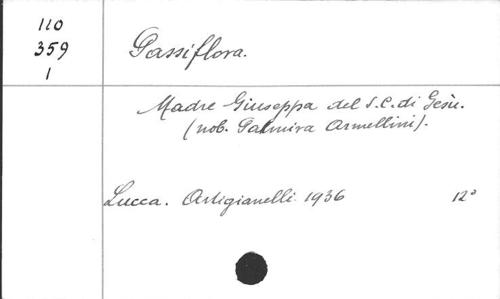 110
359
1
Passiflora.
Madre Giuseppa del S.C. di Gesù.
(nob. Palmira Armellini).
Lucca. Artigianelli 1936 12°